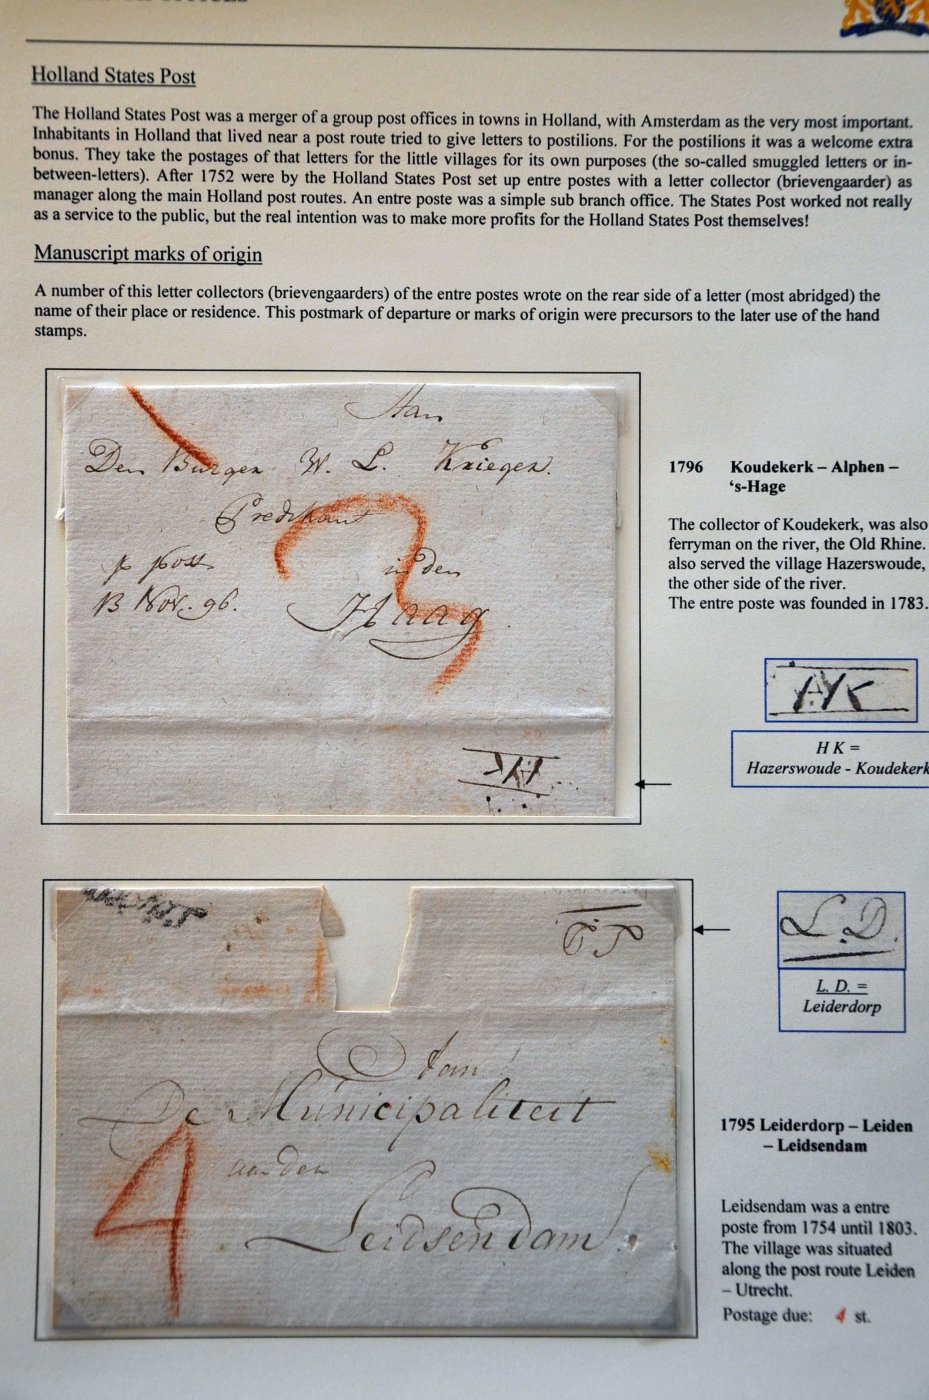 Holland States Post
The Holland States Post was a merger of a group post offices in towns in Holland, with Amsterdam as the very most important.
Inhabitants in Holland that lived near a post route tried to give letters to postilions. For the postilions it was a welcome extra
bonus. They take the postages of that letters for the little villages for its own purposes (the so-called smuggled letters or in-
between-letters). After 1752 were by the Holland States Post set up entre postes with a letter collector (brievengaarder) as
manager along the main Holland post routes. An entre poste was a simple sub branch office. The States Post worked not really
as a service to the public, but the real intention was to make more profits for the Holland States Post themselves!
Manuscript marks of origin
A number of this letter collectors (brievengaarders) of the entre postes wrote on the rear side of a letter (most abridged) the
name of their place or residence. This postmark of departure or marks of origin were precursors to the later use of the hand
stamps.
Aan
Den Burger W. L. Krieger.
Predikant
p post in den
13 Nov. 96. Haag
3
HK
1796 Koudekerk – Alphen –
‘s-Hage
The collector of Koudekerk, was also
ferryman on the river, the Old Rhine.
also served the village Hazerswoude,
the other side of the river.
The entre poste was founded in 1783.
HK
H K =
Hazerswoude - Koudekerk
L.D.
Aan
De Municipaliteit
aan den
Leidsendam
4
L.D.
L. D. =
Leiderdorp
1795 Leiderdorp – Leiden
– Leidsendam
Leidsendam was a entre
poste from 1754 until 1803.
The village was situated
along the post route Leiden
– Utrecht.
Postage due: 4 st.